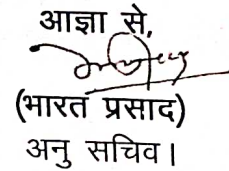 आज्ञा से,
(भारत प्रसाद)
अनु सचिव।